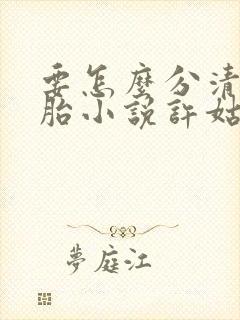 要怎麼分清
胎小說許姑
夢庭江